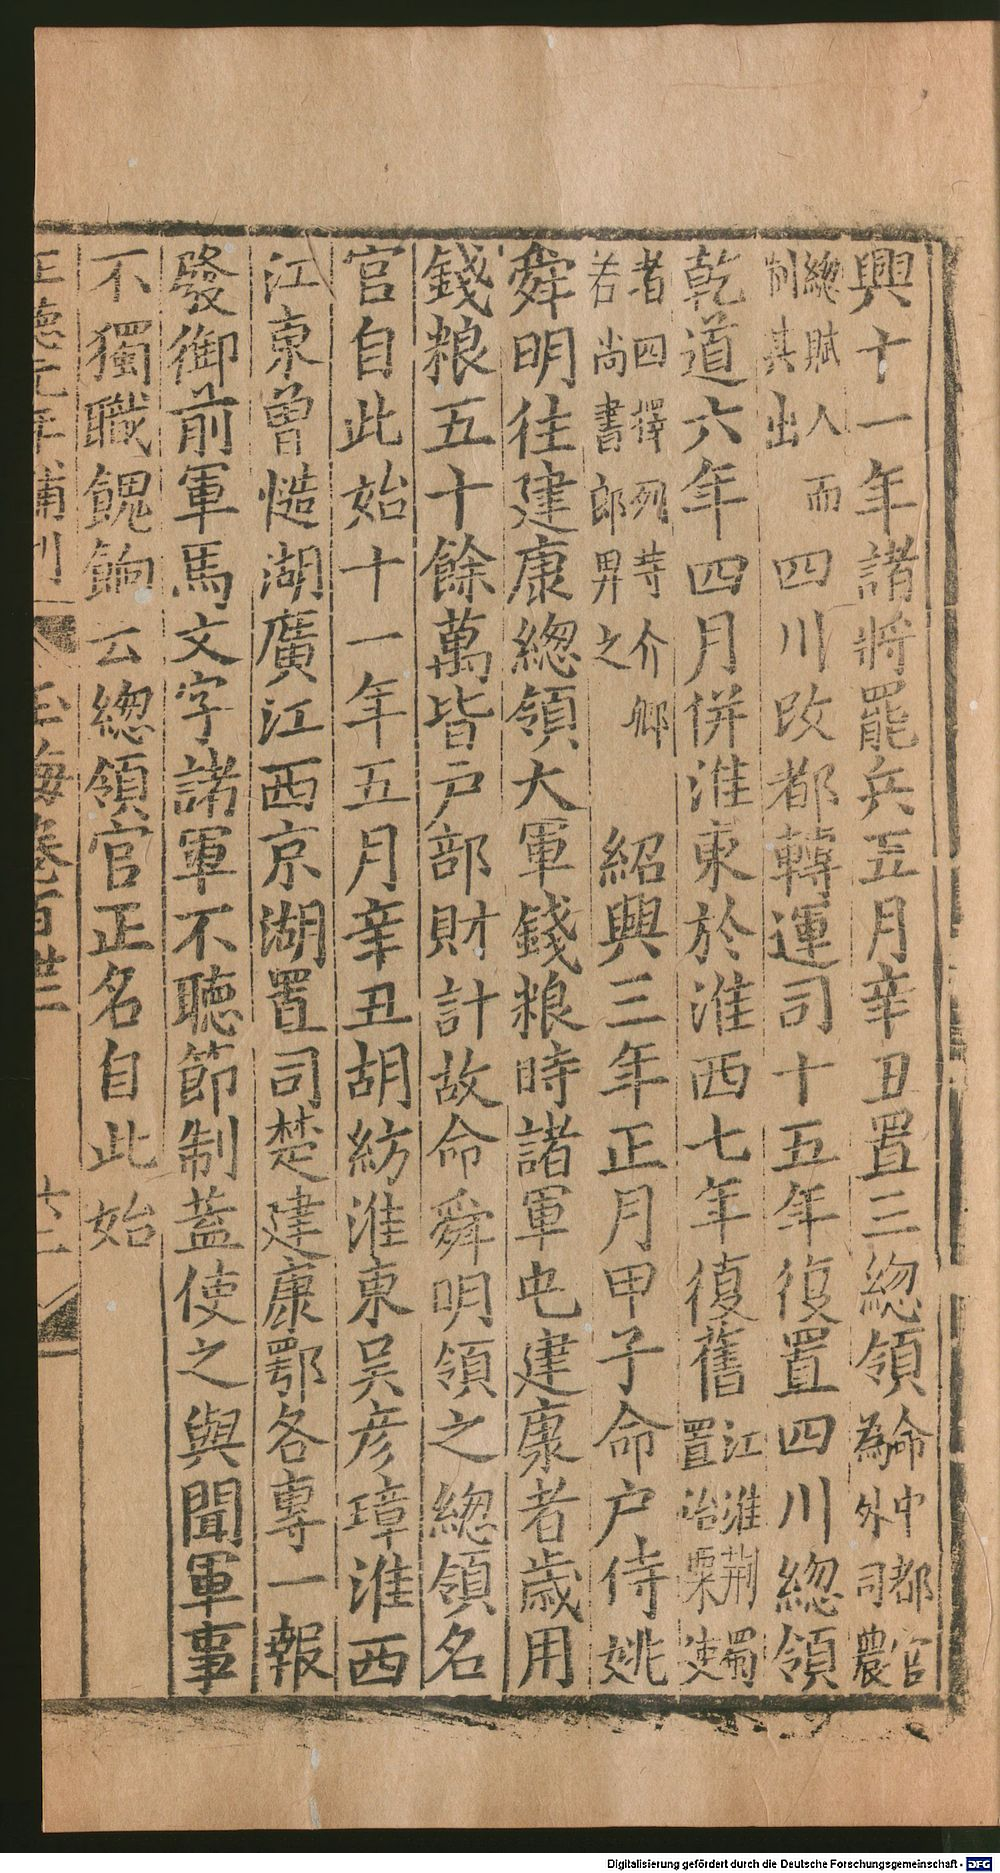 興十一年諸將罷兵五月辛丑置三總領命中都官為外司農
總賦入而制其出四川改都轉運司十五年復置四川總領
乾道六年四月併淮東於淮西七年復舊江淮荆蜀置治粟使
者四擇列寺介卿若尚書郎畀之 紹興三年正月甲子命户侍姚
舜明往建康總領大軍錢粮時諸軍屯建康者歲用
錢粮五十餘萬皆户部財計故命舜明領之總領名
官自此始十一年五月辛丑胡紡淮東吴彦璋淮西
江東曾慥湖廣江西京湖置司楚建康鄂各專一報
發御前軍馬文字諸軍不聽節制蓋使之與聞軍事
不獨職餽餉云總領官正名自此始
正德元年補刊 玉海卷百世二 六二
Digitalisierung gefördert durch die Deutsche Forschungsgemeinschaft - DFG